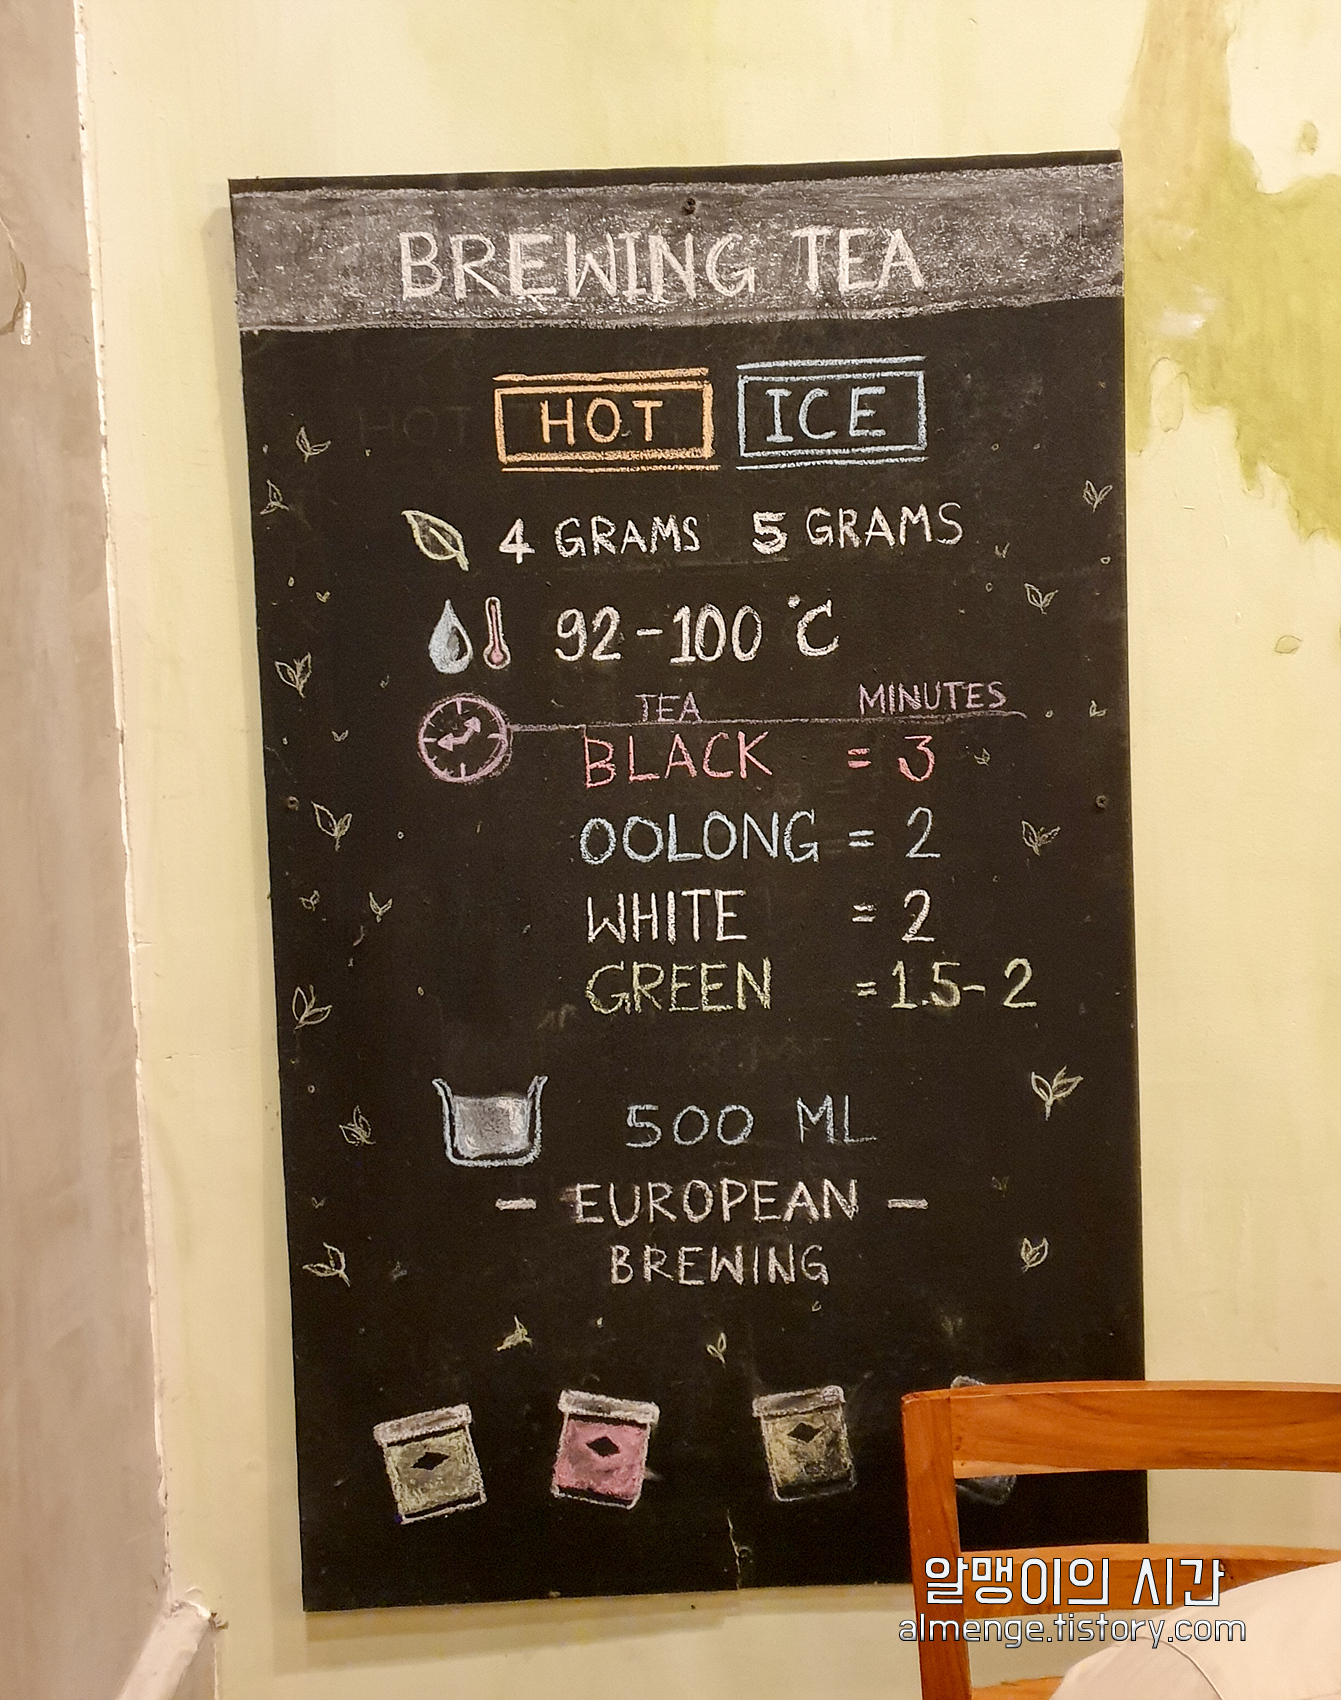 BREWING TEA
HOT ICE
4 GRAMS 5 GRAMS
92-100 °C
TEA MINUTES
BLACK = 3
OOLONG = 2
WHITE = 2
GREEN = 1.5-2
500 ML
- EUROPEAN -
BREWING
알맹이의 시간
almenge.tistory.com